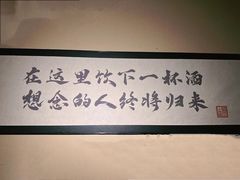 在这里饮下一杯酒
想念的人终将归来